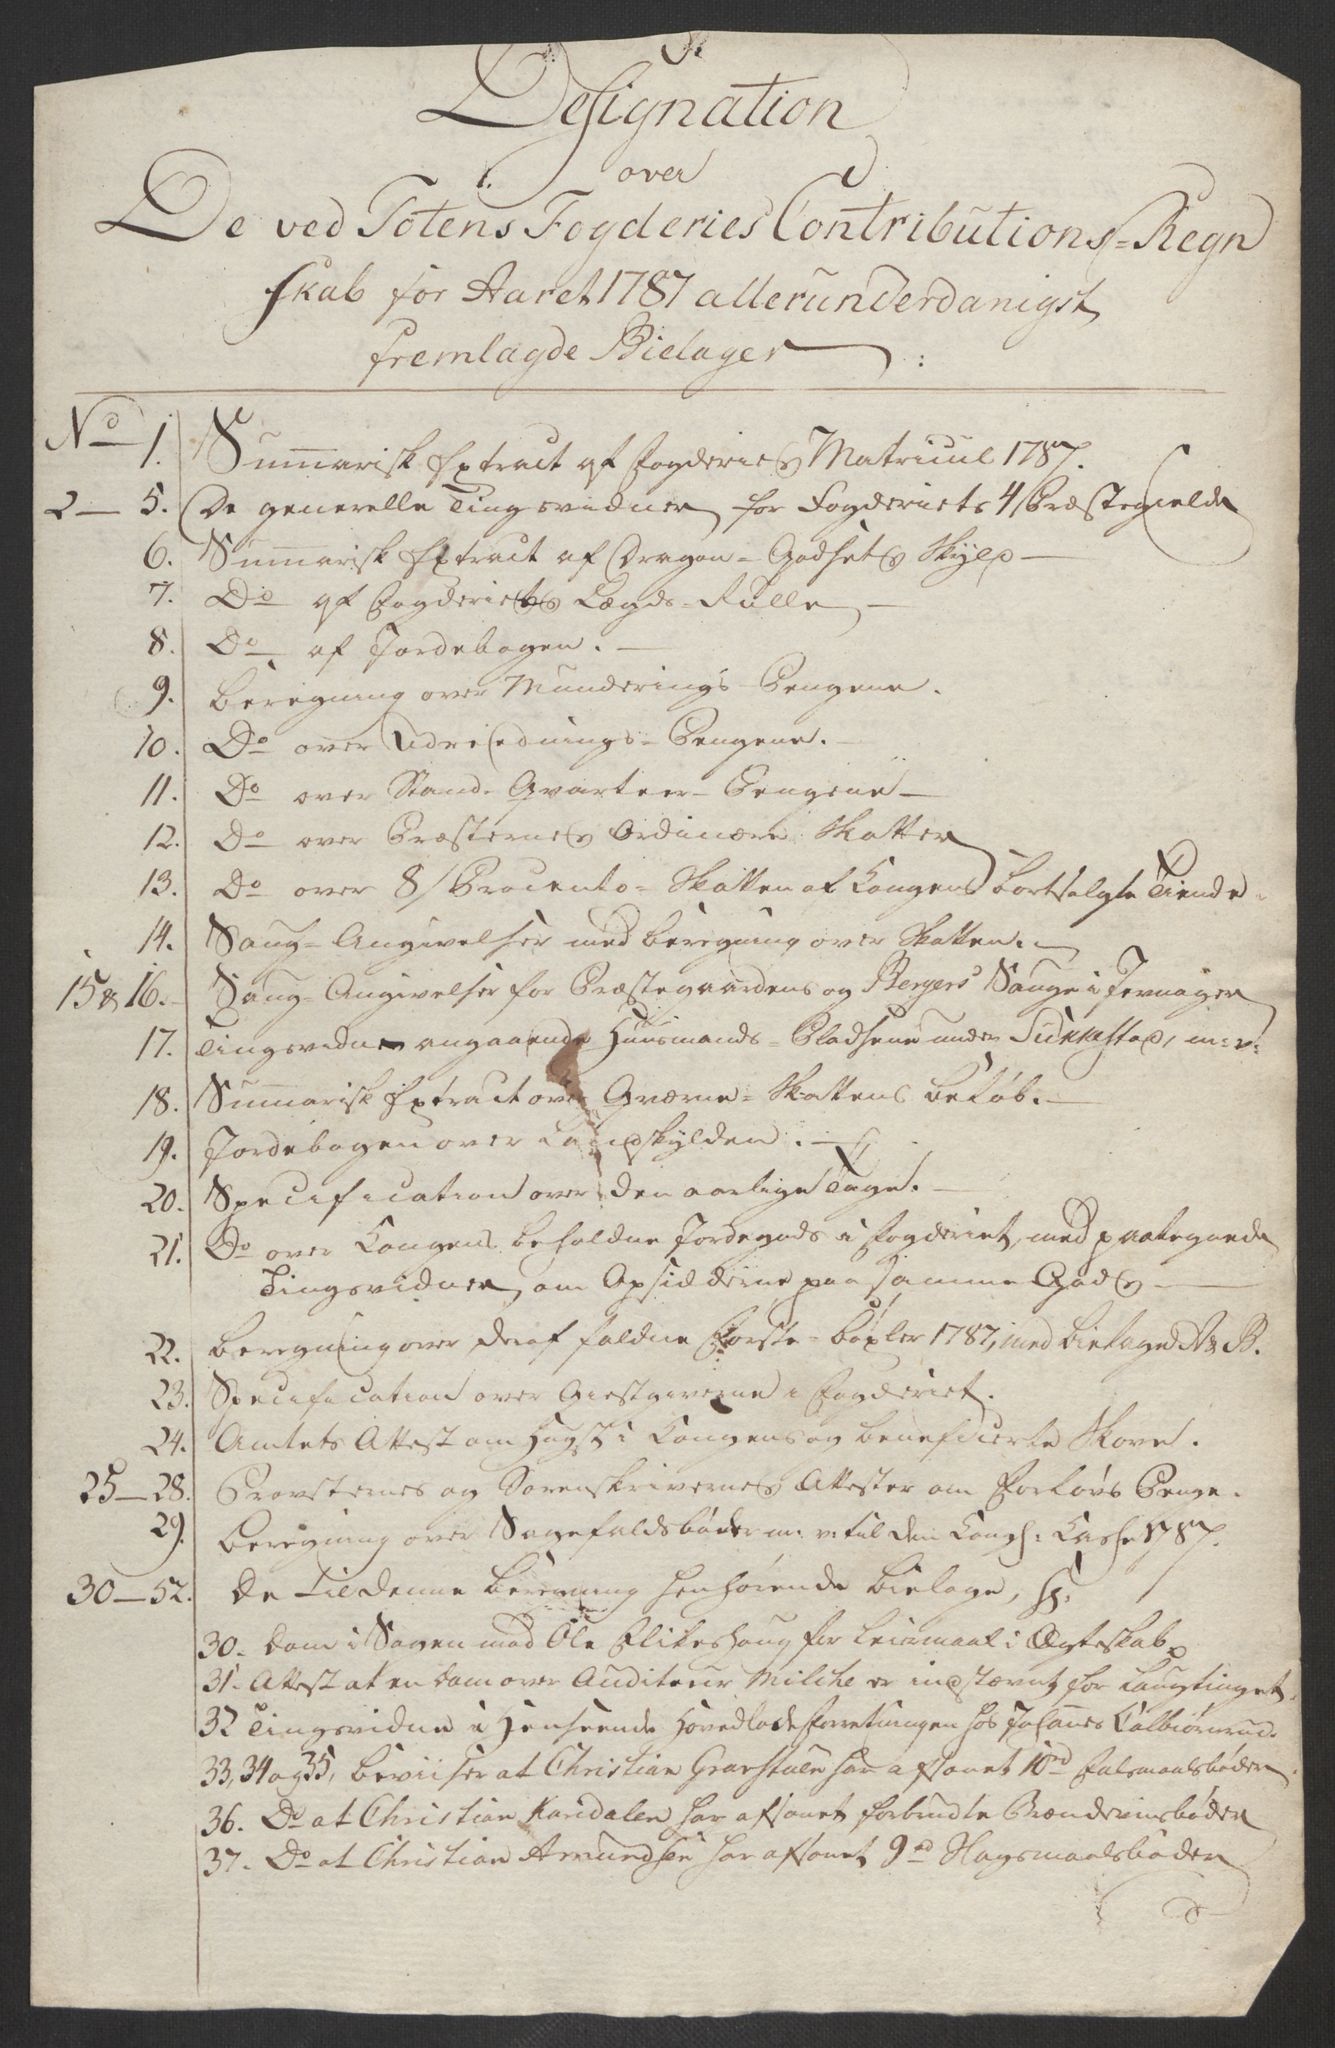 Designation
over
De ved Totens Fogderies Contributions-Regn
skab for Aaret 1787 allerunderdanigst
fremlagde Bielager
No 1. Summarisk Extract af Fogderies Matricul 1787.
2 — 5. De generelle Tingsvidner for Fogderiets 4 Præstegield
6. Summarisk Extract af Dragon-Godsets Skyld —
7. Do af Fogderiets Lægds-Rulle —
8. Do af Jordebogen. —
9. Beregning over Munderings Pengene.
10. Do over Udreednings-Pengene. —
11. Do over Stand-Qvarteer-Pengene —
12. Do over Præsternes Ordinære Skatter
13. Do over 8 Procento-Skatten af Kongens bortsolgte Tiende.
14. Saug-Angivelser med beregning over Skatten. —
15 & 16. Saug-Angivelser for Præstegaardens og Bergers Sauge i Jevnager
17. Tingsvidne angaaende Huusmands-Pladsene under Sukkestad, m:v:
18. Summarisk Extract over Qværne-Skattens Beløb. —
19. Jordebogen over Landskylden. —
20. Specification over den aarlige Tage. —
21. Do over Kongens beholdne Jordegods i Fogderiet, med paategnede
Tingsvidner, om Opsidderne paa samme Gods —
22. Beregning over deraf faldne Første-Bøxler 1787, med bielager A & B.
23. Specification over Giestgiverne i Fogderiet.
24. Amtets Attest om Hugst i Kongens og beneficerte Skove.
25 — 28. Provsternes og Sorenskrivernes Attester om Forlovs Penge.
29. Beregning over Sagefaldsbøder m: v: til den Kongl: Casse 1787.
30 — 52. De til denne Beregning henhørende bielage, s:
30. Dom i Sagen mod Ole Elikeshaug for Leiermaal i Ægteskab
31. Attest at en Dom over Auditeur Milche er indstævnt for Laugtinget.
32 Tingsvidne i Henseende Hovedlodsforretningen hos Johannes Kalbiørnrud.
33, 34 og 35, beviiser at Christian Gravstuen har afsonet 10rd Falsmaalsbøder.
36. Do at Christian Karidalen har afsonet forbrudte Brændeviinsbøder
37. Do at Christian Amundsen har afsonet 9rd Slagsmaalsbøder